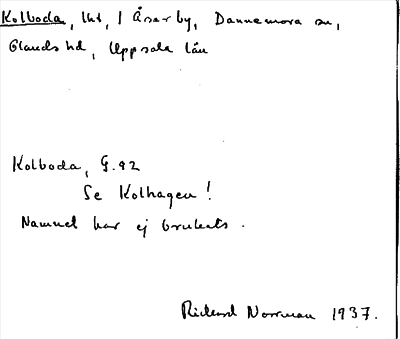 Kolboda, lht, i Åsarby, Dannemora sn,
Olands hd, Uppsala län
Kolboda, G.92
Se Kolhagen!
Namnet har ej brukats.
Rickard Norrman 1937.